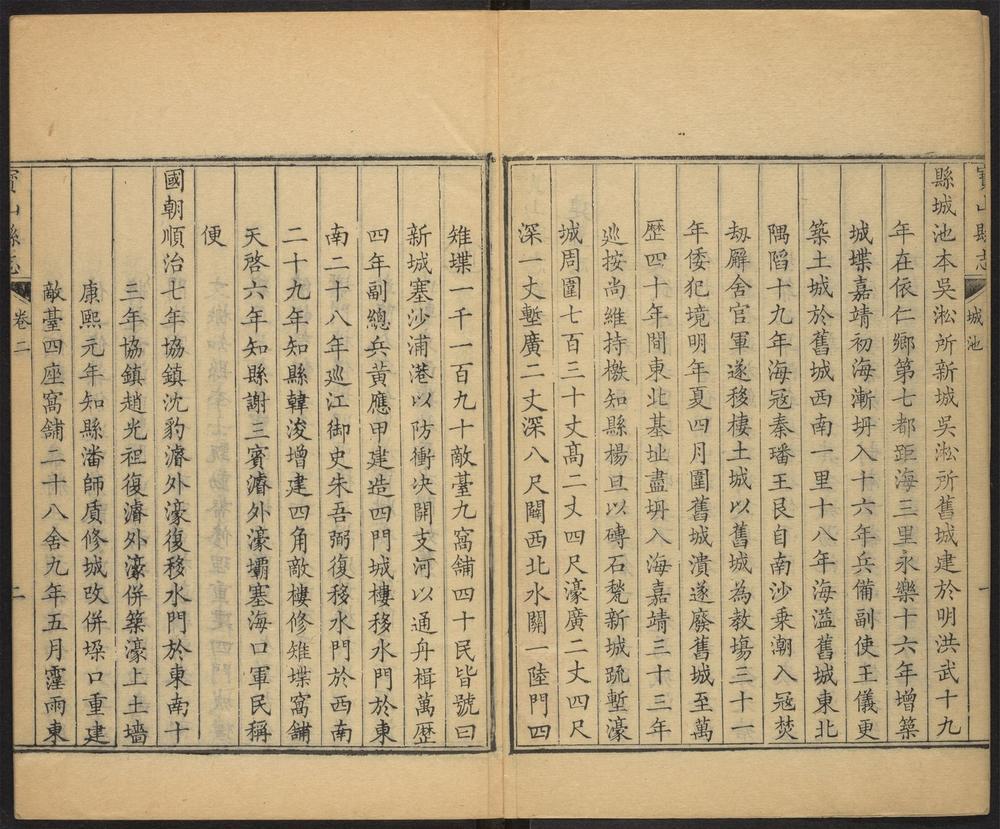 寶山縣志
城池
一
縣城池本吳淞所新城吳淞所舊城建於明洪武十九
年在依仁鄉第七都距海三里永樂十六年增築
城堞嘉靖初海漸坍入十六年兵備副使王儀更
築土城於舊城西南一里十八年海溢舊城東北
隅陷十九年海冦秦璠王艮自南沙乗潮入冦焚
刼廨舍官軍遂移棲土城以舊城為教塲三十一
年倭犯境明年夏四月圍舊城潰遂廢舊城至萬
歷四十年間東北基址盡坍入海嘉靖三十三年
廵按尚維持檄知縣楊旦以磚石甃新城疏塹濠
城周圍七百三十丈髙二丈四尺濠廣二丈四尺
深一丈塹廣二丈深八尺闢西北水關一陸門四
雉堞一千一百九十敵臺九窩舖四十民皆號曰
新城塞沙浦港以防衝决開支河以通舟楫萬歷
四年副總兵黃應甲建造四門城樓移水門於東
南二十八年巡江御史朱吾弼復移水門於西南
二十九年知縣韓浚增建四角敵樓修雉堞窩舖
天啓六年知縣謝三賓濬外濠壩塞海口軍民稱
便
國朝順治七年協鎮沈豹濬外濠復移水門於東南十
三年協鎮趙光祖復濬外濠併築濠上土墻
康熙元年知縣潘師質修城攺併垜口重建
敵臺四座窩舖二十八舍九年五月霪雨東
寶山縣志
卷二
二